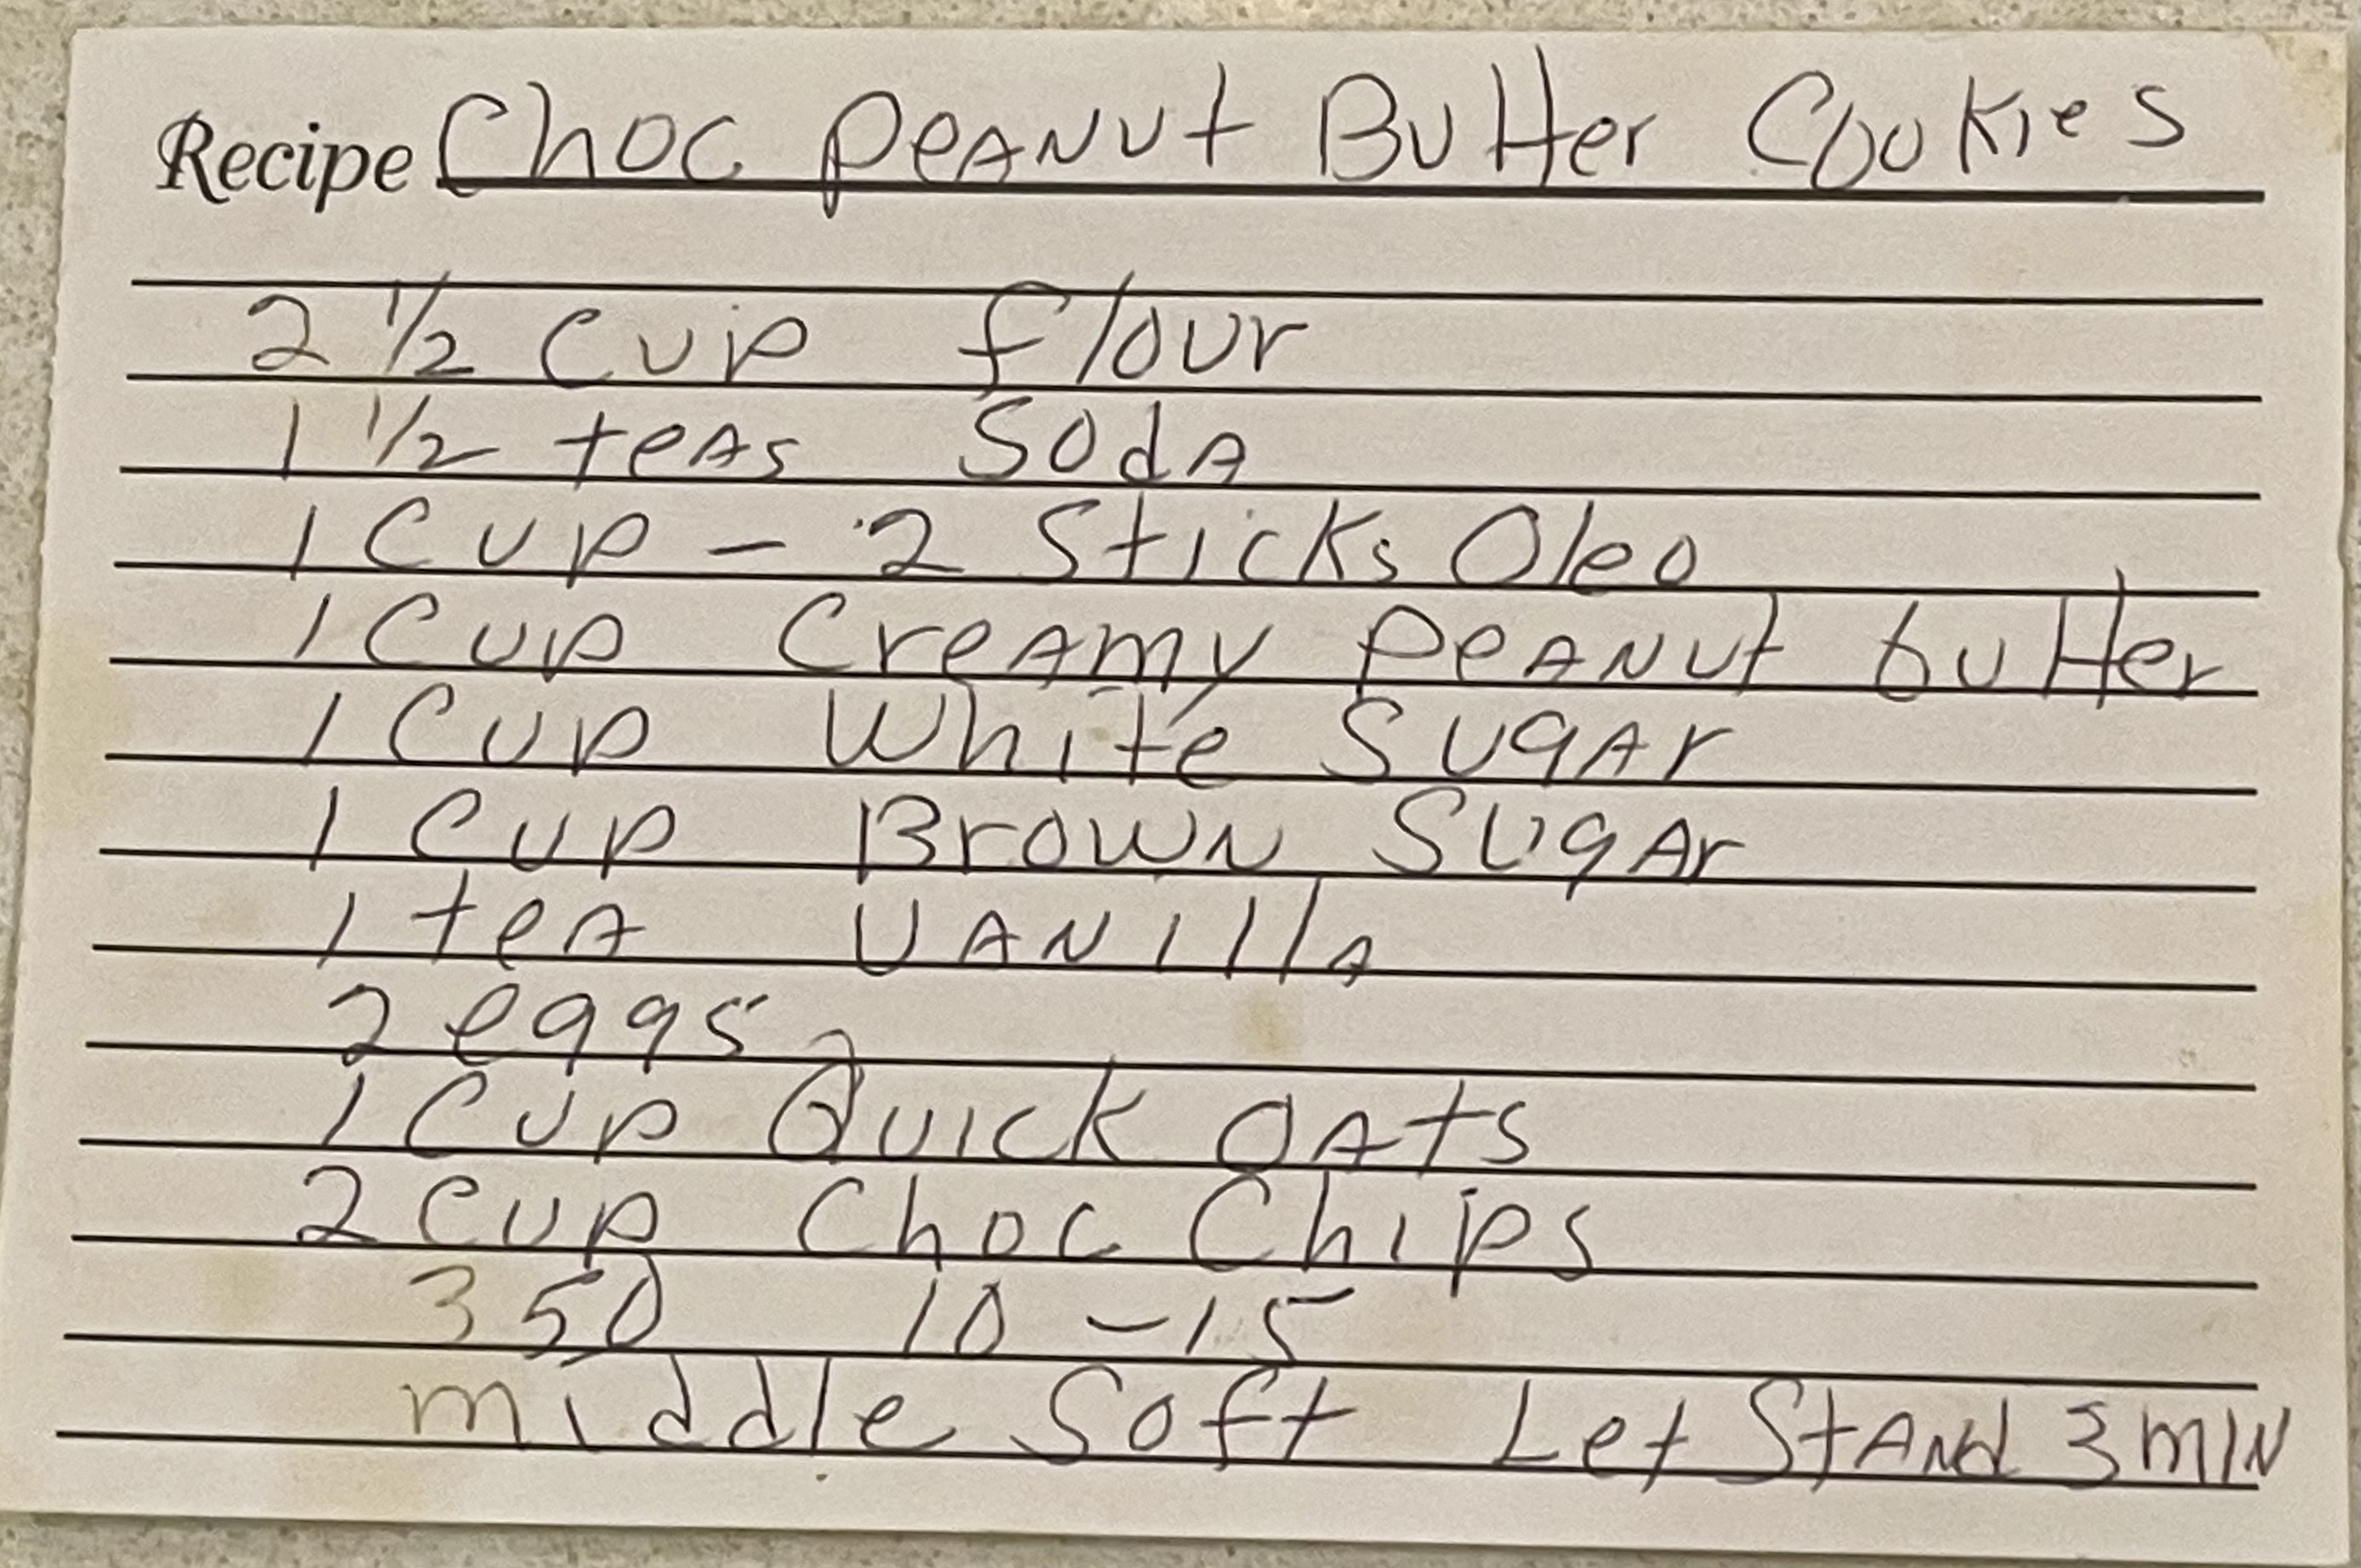 Recipe Choc Peanut Butter Cookies
2 1/2 cup flour
1 1/2 teas Soda
1 Cup - 2 Sticks Oleo
1 Cup Creamy Peanut butter
1 Cup White Sugar
1 Cup Brown Sugar
1 tea Vanilla
2 eggs
1 Cup Quick Oats
2 Cup Choc Chips
350 10-15
middle Soft Let Stand 3 min